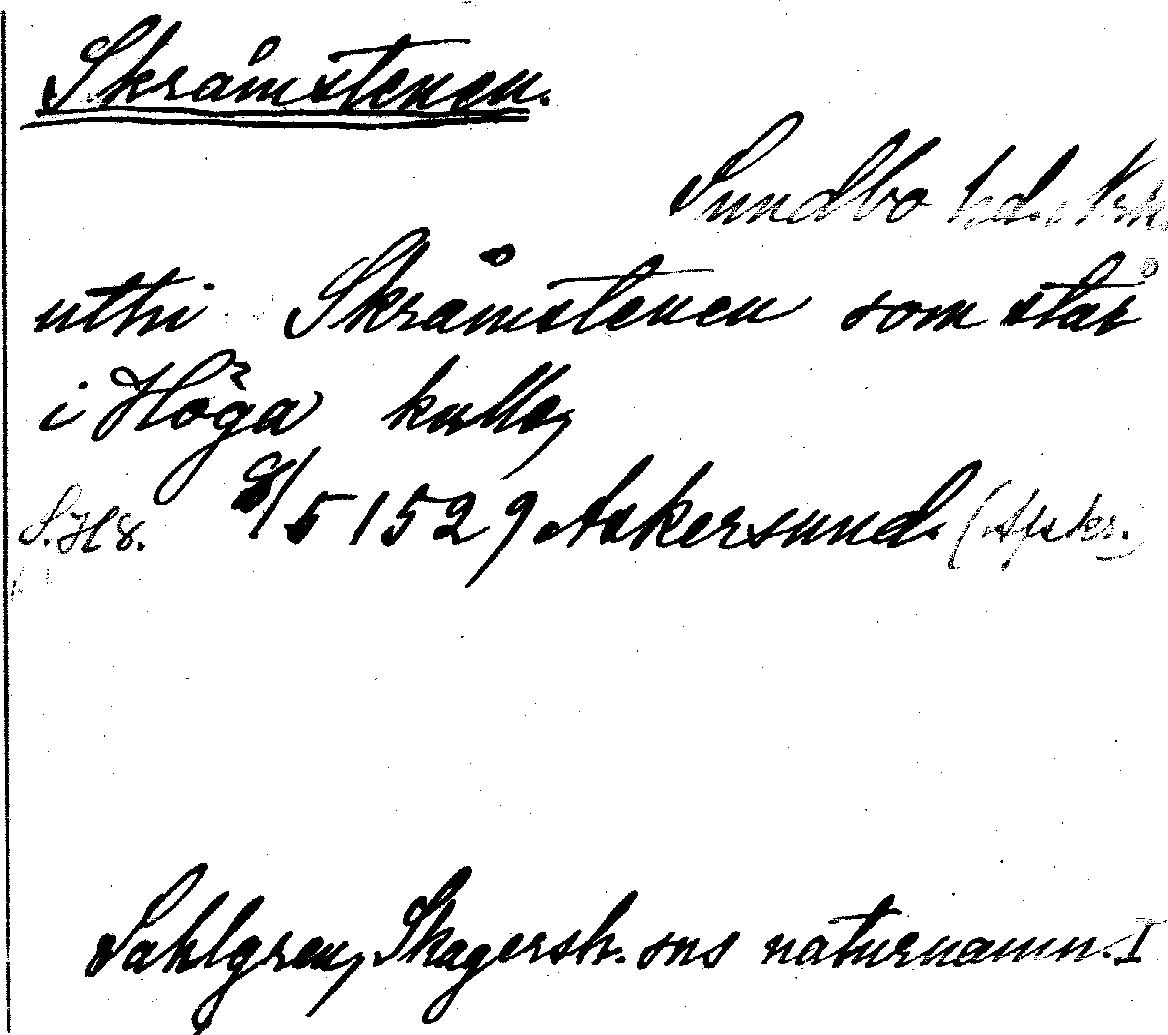 Skråmstenen.
Sundbo hd. Nrk.
utthi Skråmstenen som står
i Höga kulla,
S.H 8. 8/5 1529 Askersund. (Afskr.)
Sahlgren, Skagersh. sns naturnamn. I